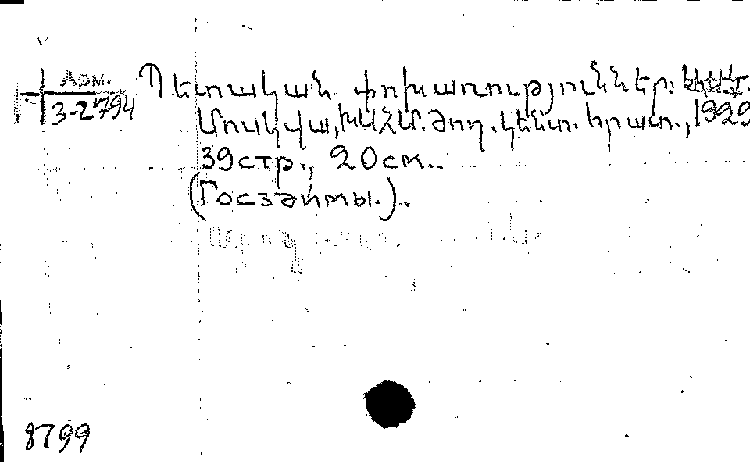 Арм.
3-2794
Պետական փոխառություններ.
Մոսկվա, ԽՍՀՄ. ժող. կենտ. հրատ., 1929
39стр., 20см..
(Госзаймы.).
8799